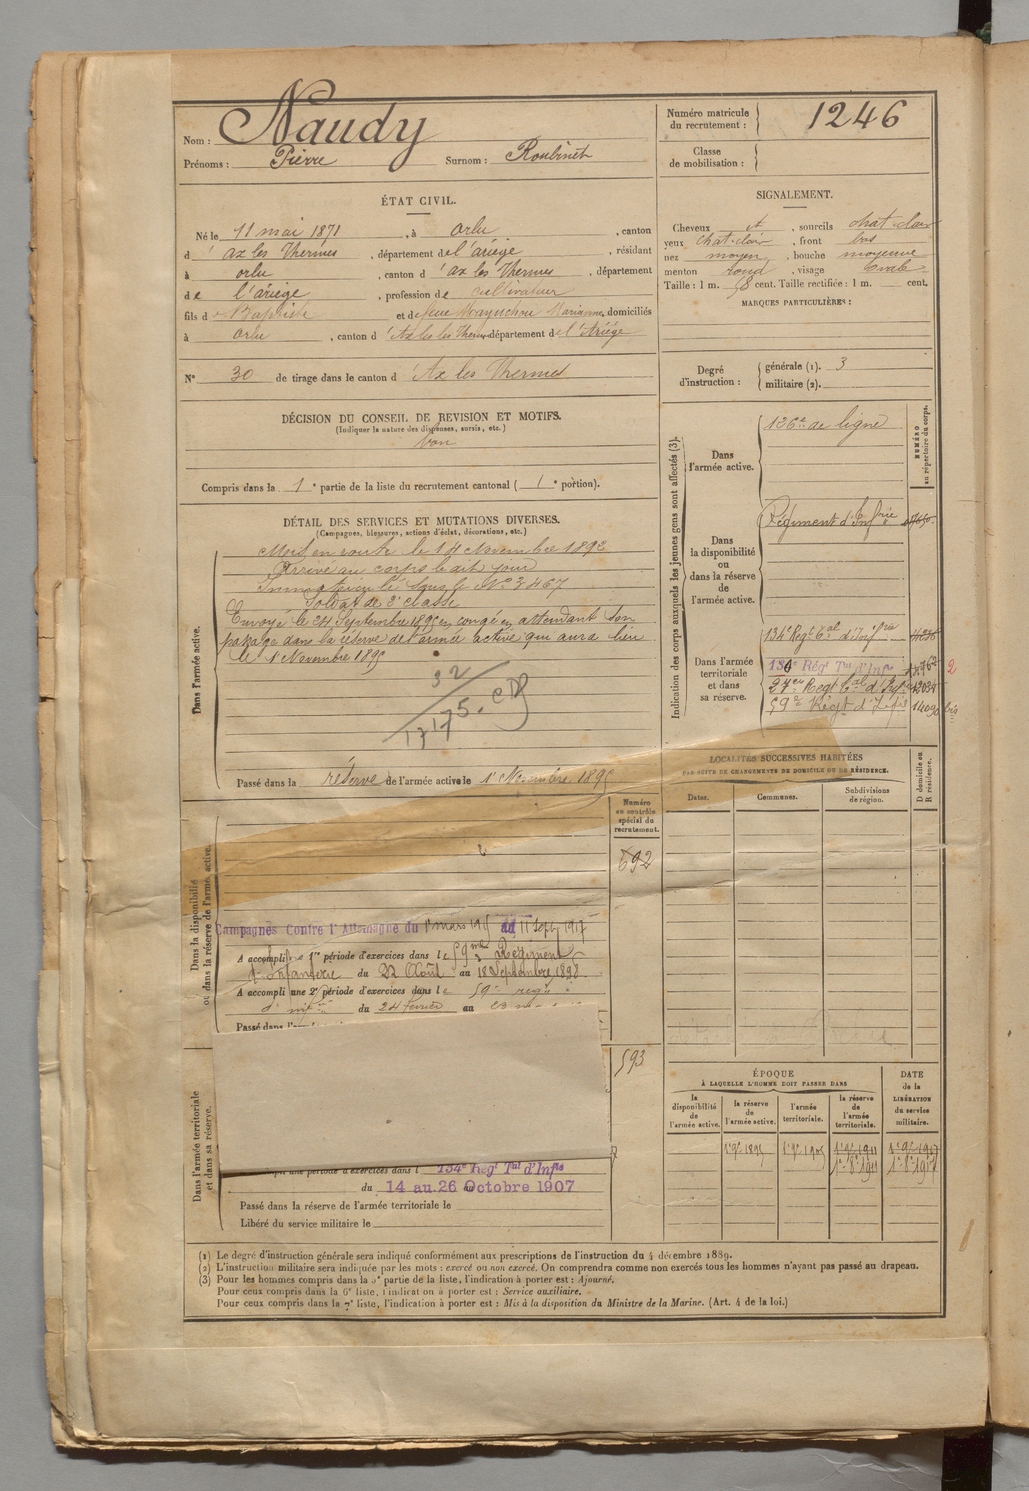 Nom : Naudy
Prénoms : Pierre Surnom : Roubinet
Numéro matricule du recrutement : 1246
Classe de mobilisation :
ÉTAT CIVIL.
Né le 11 mai 1871, à Orlu, canton
d' ax les Thermes, département de l'ariège, résidant
à orlu, canton d' ax les Thermes, département
de l'ariège, profession de cultivateur
fils de Baptiste et de feue Marianne, domiciliés
à orlu, canton d' Ax les Thermes département de l'Ariège
N° 30 de tirage dans le canton d' Ax les Thermes
DÉCISION DU CONSEIL DE REVISION ET MOTIFS.
(Indiquer la nature des dispenses, sursis, etc.)
bon
Compris dans la 1e partie de la liste du recrutement cantonal ( 1e portion).
SIGNALEMENT.
Cheveux et, sourcils chat-clair
yeux chat-clair, front bas
nez moyen, bouche moyenne
menton rond, visage ovale
Taille : 1 m. 58 cent. Taille rectifiée : 1 m. cent.
MARQUES PARTICULIÈRES :
Degré d'instruction : générale (1). 3
militaire (2).
DÉTAIL DES SERVICES ET MUTATIONS DIVERSES.
(Campagnes, blessures, actions d'éclat, décorations, etc.)
Dans l'armée active.
Mis en route le 14 Novembre 1892
Arrivé au corps le dit jour
Immatriculé sous le N° 3467
Soldat de 2e classe
Envoyé le 24 Septembre 1895 en congé en attendant son
passage dans la réserve de l'armée active qui aura lieu
le 1 Novembre 1895
32
17175.
Passé dans la réserve de l'armée active le 1er Novembre 1895
Indication des corps auxquels les jeunes gens sont affectés (3).
NUMÉRO au répertoire du corps.
Dans l'armée active.
126e de ligne
Dans la disponibilité ou dans la réserve de l'armée active.
Régiment d'Infrie
Dans l'armée territoriale et dans sa réserve.
134e Regt Tal d'Infrie
130e Régt Tal d'Infie
27e Regt Tal d'Infie
59e Régt d'Infie 14090 bis
2
LOCALITÉS SUCCESSIVES HABITÉES
PAR SUITE DE CHANGEMENTS DE DOMICILE OU DE RÉSIDENCE.
Dates. Communes. Subdivisions de région. D domicile ou R résidence.
Dans la disponibilité ou dans la réserve de l'armée active.
Numéro au contrôle spécial du recrutement.
692
Campagnes Contre l'Allemagne du 1er mars 1915 au 11 Sept 1917
A accompli une 1re période d'exercices dans le 59me Régiment
d'infanterie du 22 Août au 18 Septembre 1898
A accompli une 2e période d'exercices dans le 59e regt
d'infie du 24 fevrier au 23
Passé dans l'armée
593
Dans l'armée territoriale et dans sa réserve.
une période d'exercices dans l 134e Régt Tal d'Infie
du 14 au 26 Octobre 1907
Passé dans la réserve de l'armée territoriale le
Libéré du service militaire le
ÉPOQUE
À LAQUELLE L'HOMME DOIT PASSER DANS
DATE de la LIBÉRATION du service militaire.
la disponibilité de l'armée active. la réserve de l'armée active. l'armée territoriale. la réserve de l'armée territoriale.
1er 9bre 1895 1er 9bre 1905 1er 9bre 1911 1er 9bre 1917
1er 8bre 1911 1er 8bre 1917
(1) Le degré d'instruction générale sera indiqué conformément aux prescriptions de l'instruction du 4 décembre 1889.
(2) L'instruction militaire sera indiquée par les mots : exercé ou non exercé. On comprendra comme non exercés tous les hommes n'ayant pas passé au drapeau.
(3) Pour les hommes compris dans la 5e partie de la liste, l'indication à porter est : Ajourné.
Pour ceux compris dans la 6e liste, l'indication à porter est : Service auxiliaire.
Pour ceux compris dans la 7e liste, l'indication à porter est : Mis à la disposition du Ministre de la Marine. (Art. 4 de la loi.)